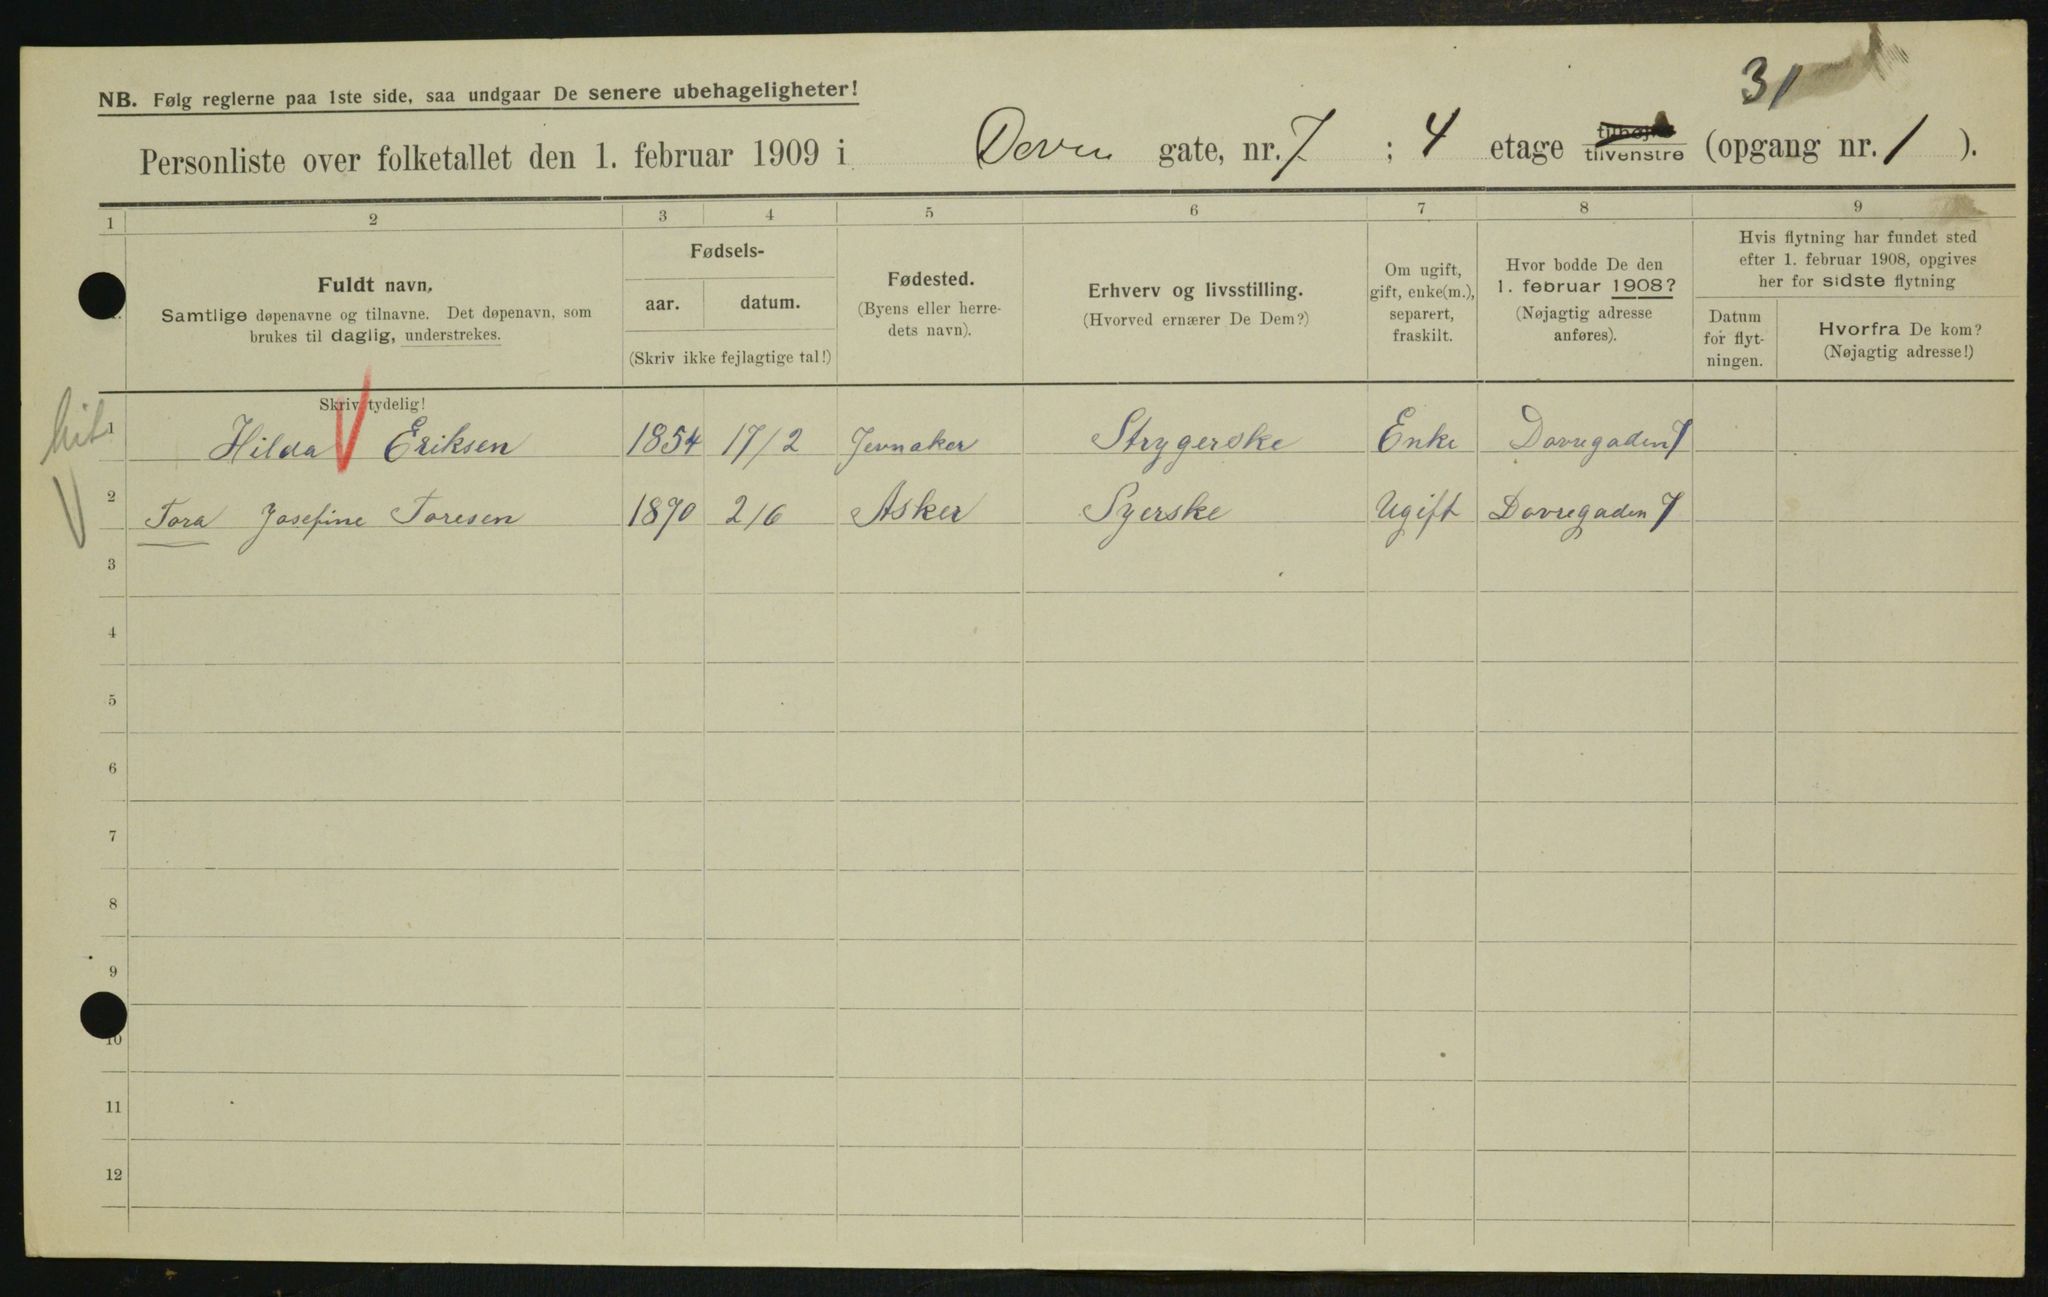 31
NB. Følg reglerne paa 1ste side, saa undgaar De senere ubehageligheter!
Personliste over folketallet den 1. februar 1909 i Dovre gate, nr. 7 ; 4 etage tilhøjre tilvenstre (opgang nr. 1 ).
1 2 3 4 5 6 7 8 9
Fuldt navn.
Samtlige døpenavne og tilnavne. Det døpenavn, som
brukes til daglig, understrekes.
Fødsels-
aar. datum.
(Skriv ikke fejlagtige tal!)
Fødested.
(Byens eller herre-
dets navn).
Erhverv og livsstilling.
(Hvorved ernærer De Dem?)
Om ugift,
gift, enke(m.),
separert,
fraskilt.
Hvor bodde De den
1. februar 1908?
(Nøjagtig adresse
anføres).
Hvis flytning har fundet sted
efter 1. februar 1908, opgives
her for sidste flytning
Datum
for flyt-
ningen.
Hvorfra De kom?
(Nøjagtig adresse!)
Skriv tydelig!
1 Hilda Eriksen 1854 17/2 Jevnaker Strygerske Enke Dovregaden 7
2 Tora Josefine Toresen 1890 2/6 Asker Syerske Ugift Dovregaden 7
3
4
5
6
7
8
9
10
11
12